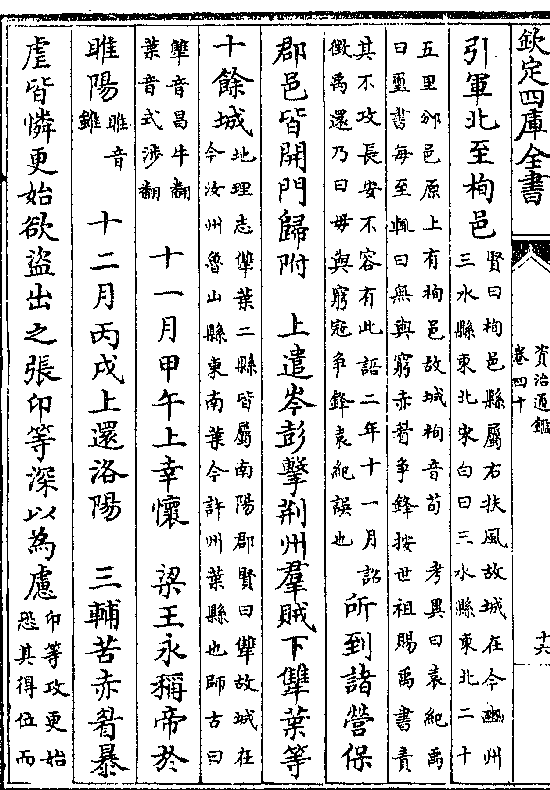 欽定四庫全書
資治通鑑
卷四十
十六
引軍北至栒邑
賢曰栒邑縣屬右扶風故城在今豳州
三水縣東北宋白曰三水縣東北二十
五里邠邑原上有栒邑故城栒音荀　考異曰袁紀禹
曰璽書每至輒曰無與窮赤眉争鋒按世祖賜禹書責
其不攻長安不容有此語二年十一月詔
徴禹還乃曰毋與窮宼争鋒袁紀誤也
所到諸營保
郡邑皆開門歸附　上遣岑彭擊荆州羣賊下犨葉等
十餘城
地理志犨葉二縣皆屬南陽郡賢曰犨故城在
今汝州魯山縣東南葉今許州葉縣也師古曰
犨音昌牛翻
葉音式涉翻
十一月甲午上幸懷　梁王永稱帝於
睢陽
睢音
雖
十二月丙戌上還洛陽　三輔苦赤眉暴
虐皆憐更始欲盜出之張卬等深以為慮
卬等攻更始
恐其得位而